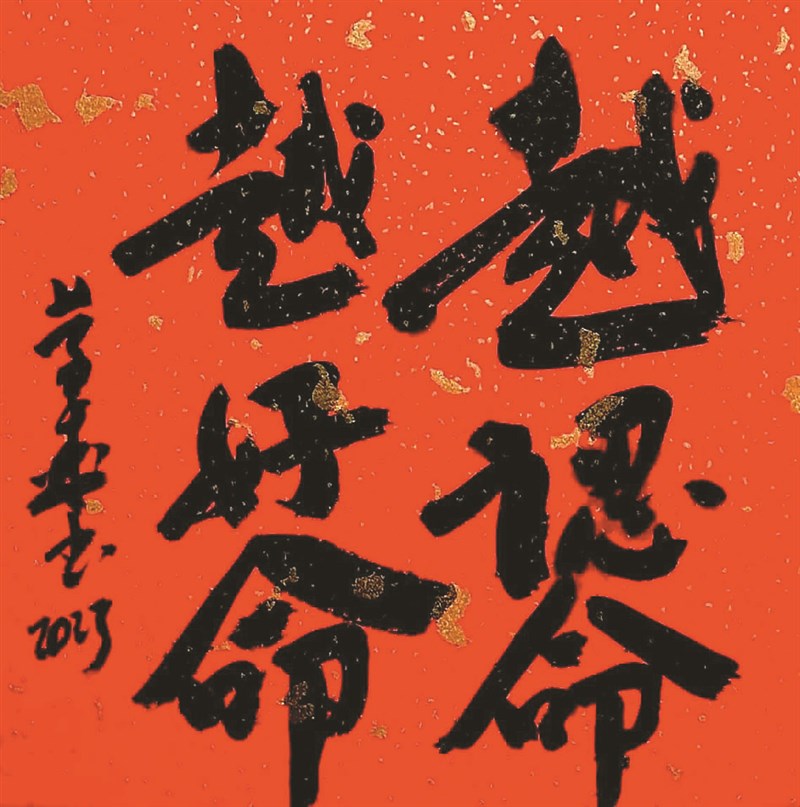 越認命
越好命
2025